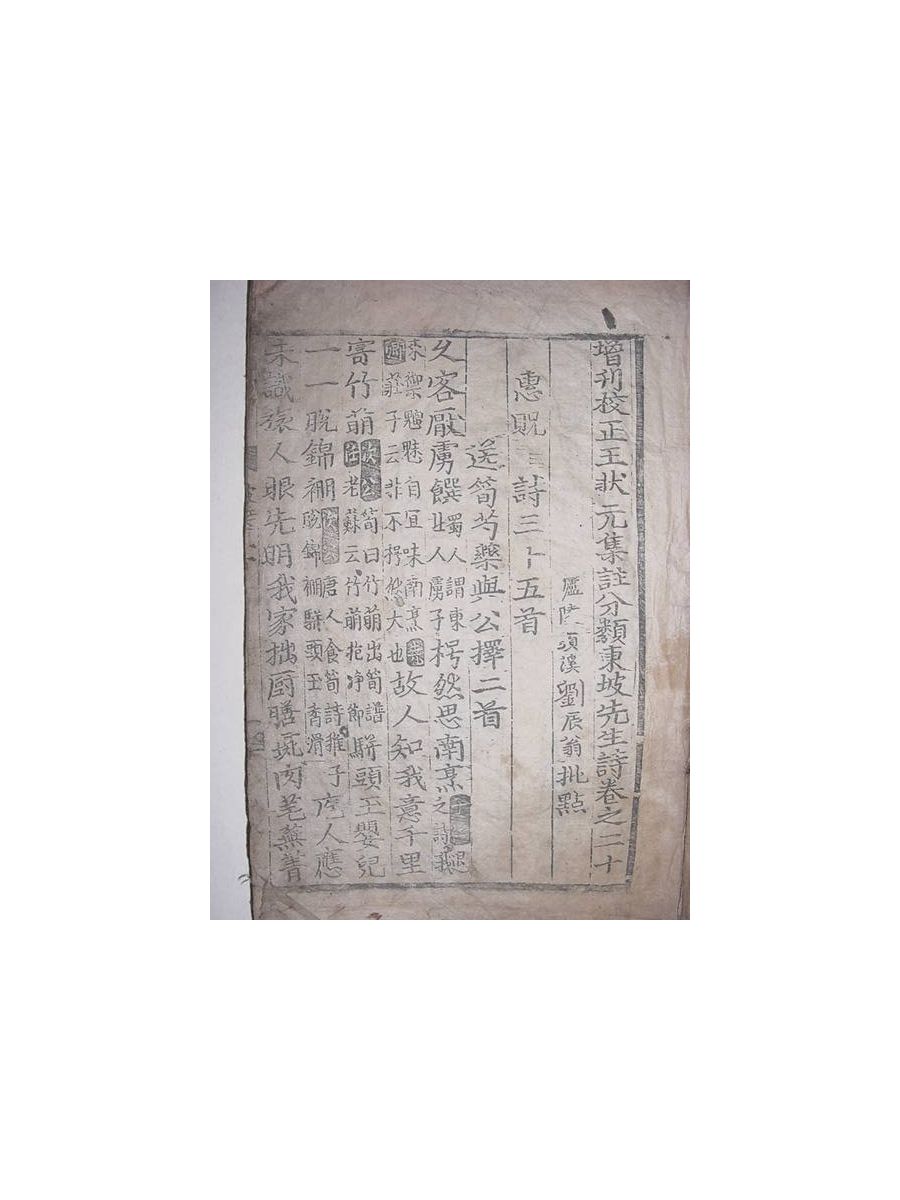 增刊校正王狀元集註分類東坡先生詩卷之二十
廬陵須溪劉辰翁批點
惠貺 詩三十五首
送筍芍藥與公擇二首
久客厭虜饌 蜀人謂東北人虜子 枵然思南烹 之謝
來禦魑魅自宜味南烹 莊子云非不枵然大也 故人知我意千里
寄竹萌 次公 筍曰竹萌出筍譜 任 老蘇云竹萌抱净節 駢頭玉嬰兒
一一脫錦裯 唐人食筍詩稚子 脫錦裯駢頭玉香滑 庖人應
未識旅人眼先明我家拙厨膳彘肉芼蕪菁